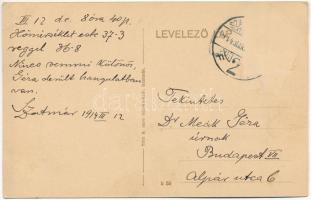 III 12 d.e. 8 óra 40 p.
Hőmérséklet este 37-3
reggel 36-8
Nincs semmi különös,
Géza derült hangulatban
van.
Szatmár 1914 III 12
LEVELEZŐ
Tekintetes
Dr Meák Géza
úrnak
Budapest VII.
Alpár utca 6